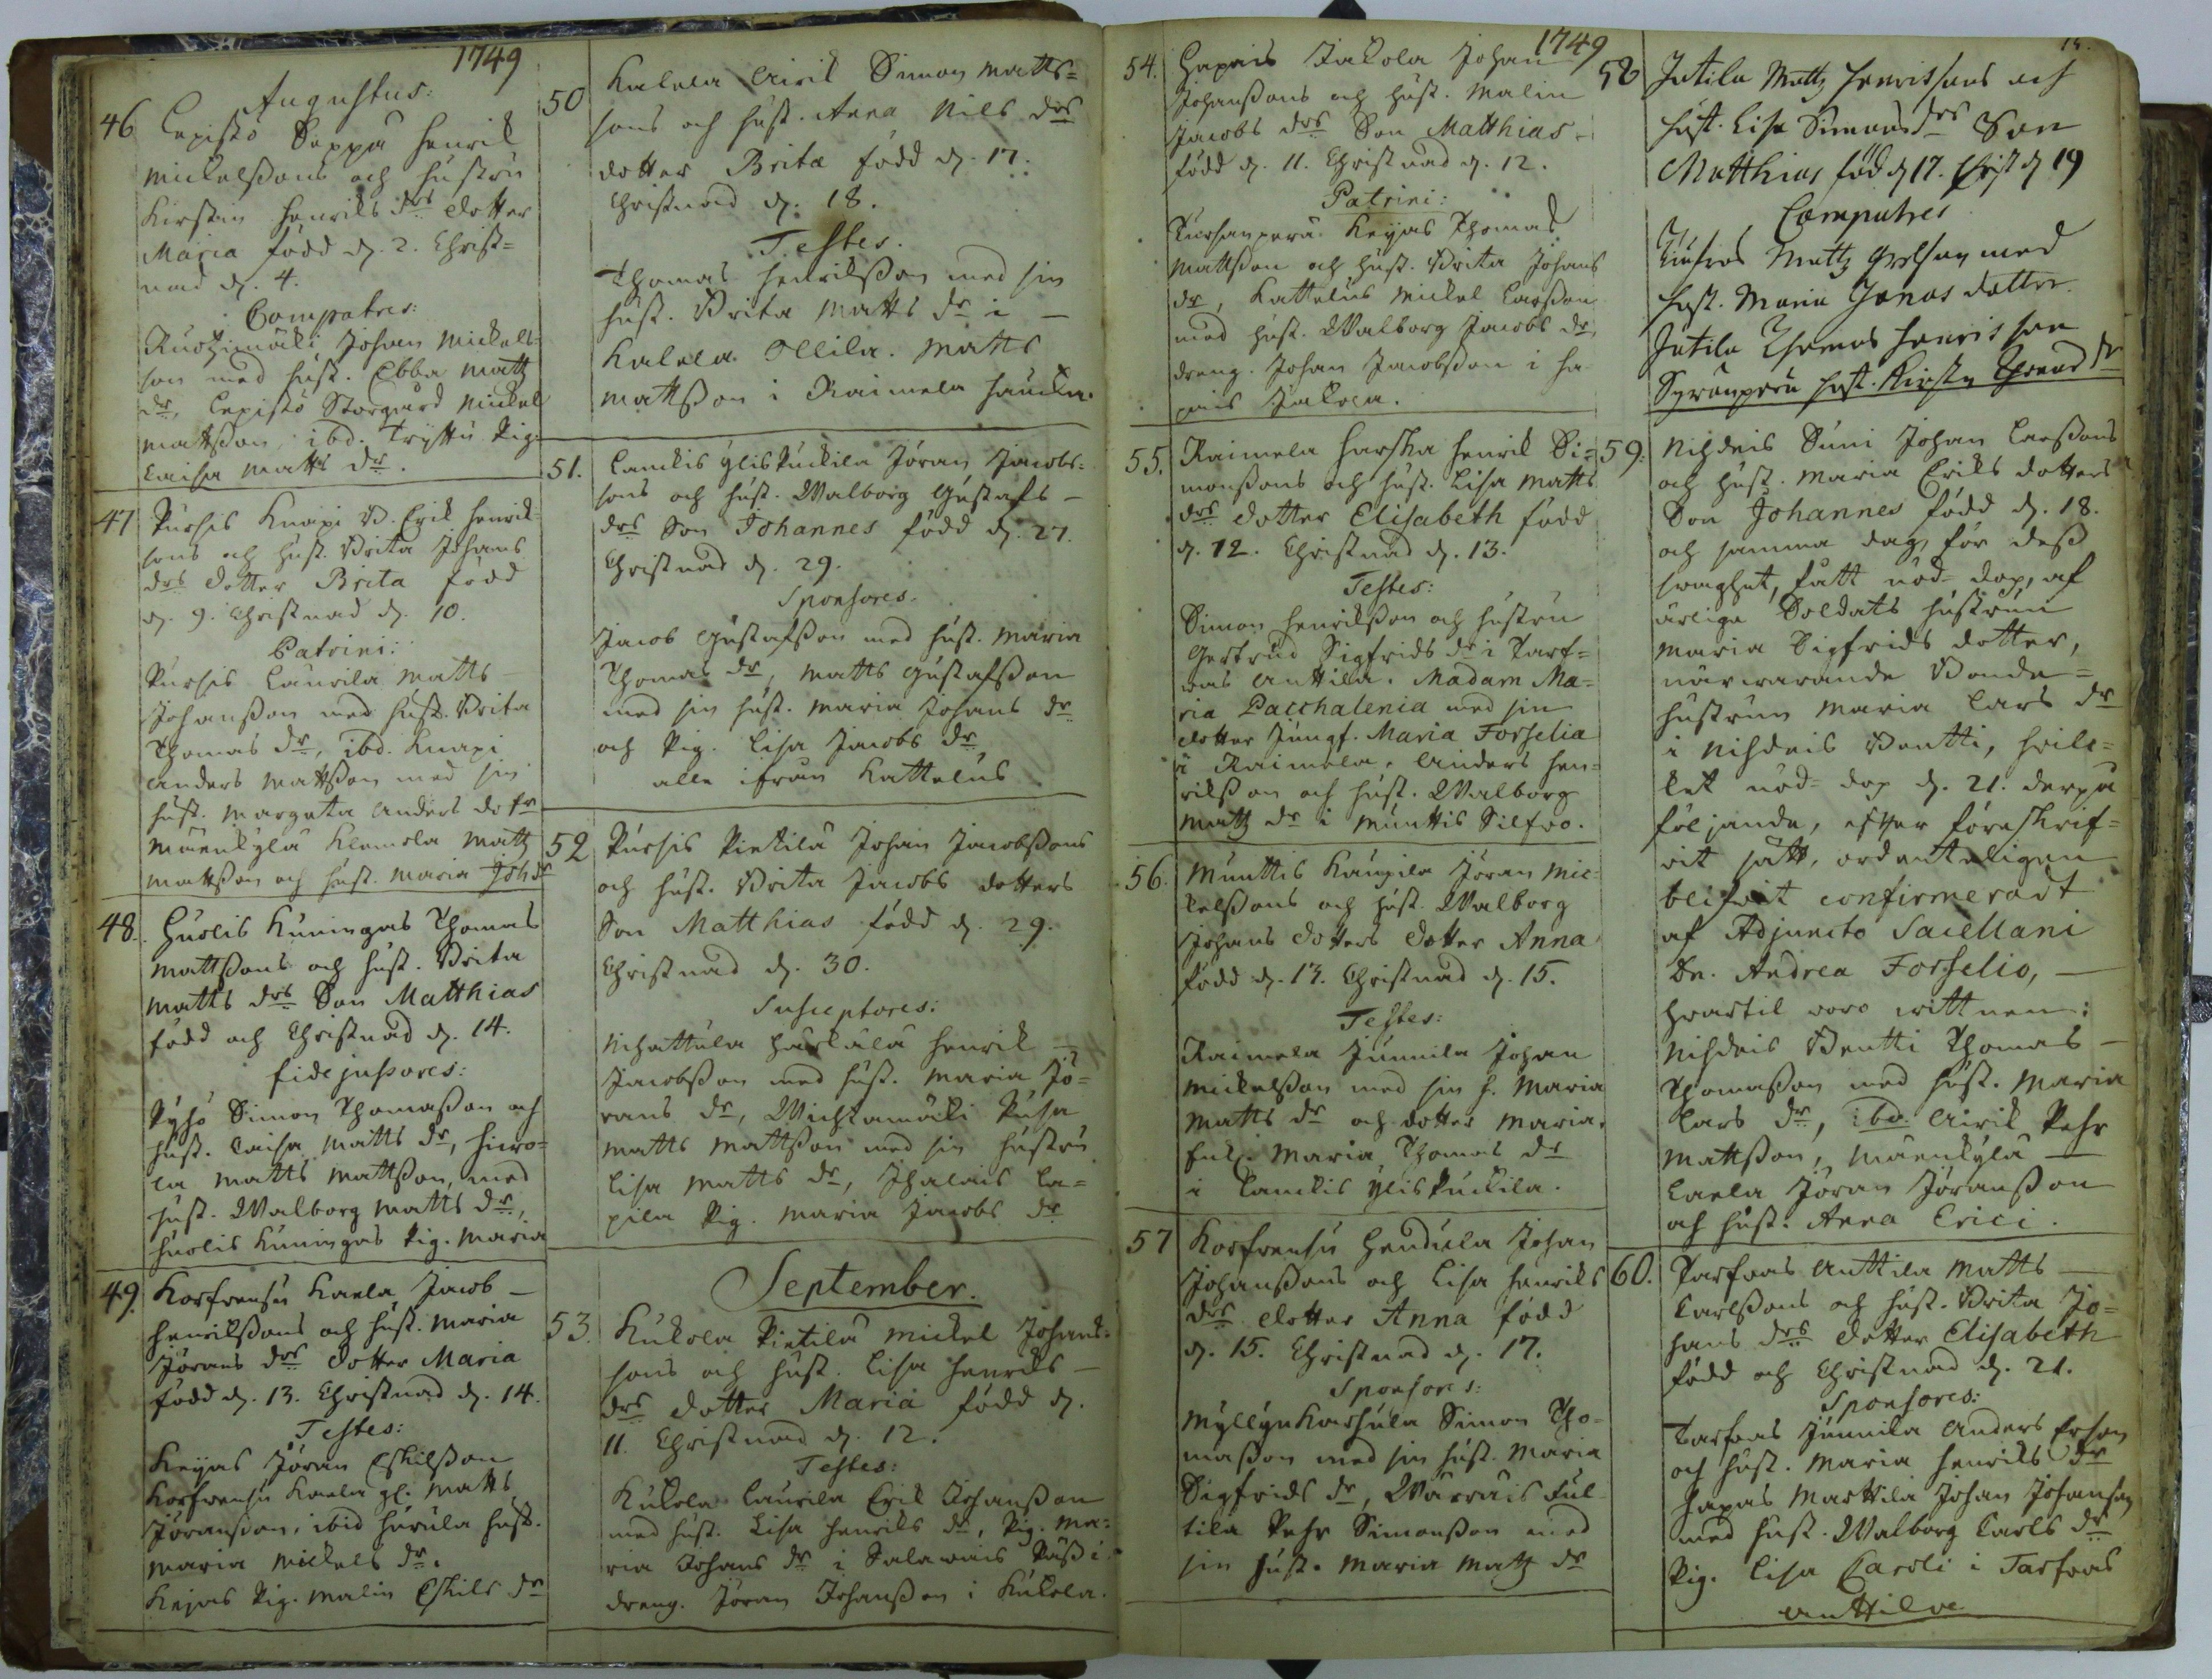 1749
Augustus:
46 Lepistö Seppä Henrik
Mickelssons och hustru
Kirstin Henriks drs dotter
Maria född d. 2. Christ=
nad d. 4.
Compatres:
Johan Mickels=
son med hust. Ebba Matz
dr, Lepistö Storgård Mickel
Mattsson, ibd. Pig.
Caisa Matts dr.
47 Pursis Knapi B. Erik Henrik=
sons och hust. Brita Johans
drs dotter Brita född
d. 9. Christnad d. 10.
Patrini:
Pursis Laurila Matts
Johansson med hust. Brita
Thomas dr, ibd. Knapi
Anders Mattsson med sin
hust. Margeta Anders dotr
Mäenkylä Klemola Matz
Mattson och hust. Maria Joh dr
48. Huolis Kuningas Thomas
Mattssons och hust. Brita
Matts drs Son Matthias
född och Christnad d. 14.
fidejussores:
Simon Thomasson och
hust. Caisa Matts dr,
la Matts Mattsson, med
hust. Walborg Matts dr,
Huolis Kuningas Pig. Maria
49. Korfvensu Kaela Jacob
Henrikssons och hust. Maria
Jörans drs dotter Maria
född d. 13. Christnad d. 14.
Testes:
Keijas Jöran Eskilsson
Korfvensu Kaela gl. Matts
Jöransson, ibid Hurula hust.
Maria Mickels dr.
Keijas Pig. Malin Eskils dr
50 Kalela Airik Simon Matts=
sons och hust. Anna Nils drs
dotter Brita född d. 17.
Christnad d. 18.
Testes.
Thomas Henriksson med sin
hust. Brita Matts dr i
Kalela. Ollila. Matts
Mattsson i Raimela
51. Lanckis Ylispuckila Jöran Jacobs=
sons och hust. Walborg Gustafs
drs Son Johannes född d. 27.
Christnad d. 29.
Sponsores.
Jacob Gustafsson med hust. Maria
Thomas dr, Matts Gustafsson
med sin hust. Maria Johans dr
och Pig. Lisa Jacobs dr
alle ifrån Kattelus
52 Pursis Pietilä Johan Jacobssons
och hust. Brita Jacobs dotters
Son Matthias född d. 29.
Christnad d. 30.
Susceptores:
Nihattula Henrik
Jacobsson med hust. Maria Jö=
rans dr, Wichtamäki
Matts Mattsson med sin hustru
Lisa Matts dr, Ihalais La=
pila Pig. Maria Jacobs dr
September.
53. Kukola Pietilä Mickel Johans=
sons och hust. Lisa Henriks
drs dotter Maria född d.
11. Christnad d. 12.
Testes:
Kukola Laurila Erik Johansson
med hust. Lisa Henriks dr, Pig. Ma=
ria Johans dr i Salavais Pässi
dreng. Jöran Johansson i Kukola.
1749
54. Hapais Jakola Johan
Johanssons och hust. Malin
Jacobs drs Son Matthias
född d. 11. Christnad d. 12.
Patrini:
Keijas Thomas
Mattsson och hust. Brita Johans
dr, Kattelus Mickel Larsson
med hust. Walborg Jacobs dr,
dreng. Johan Jacobsson i Ha
pais Jakola.
55. Raimela Harsta Henrik Si=
monssons och hust. Lisa Matts
drs dotter Elisabeth född
d. 12. Christnad d. 13.
Testes:
Simon Henriksson och hustru
Gertrud Sigfrids dr i Tarf=
vas Anttila. Madam Ma=
ria Pacchalenia med sin
dotter Jungf. Maria Forselia
i Raimela. Anders Hen=
riksson och hust. Walborg
Matz dr i Munttis Silfvo.
56. Munttis Kaupila Jöran Mic=
kelssons och hust. Walborg
Johans dotters dotter Anna
född d. 13. Christnad d. 15.
Testes:
Raimela Junnila Johan
Mickelsson med sin h. Maria
Matts dr och dotter Maria.
Maria Thomas dr
i Lanckis Ylispuckila.
57 Korfvensu Hendula Johan
Johanssons och Lisa Henriks
drs dotter Anna född
d. 15. Christnad d. 17.
Sponsores:
Myllynkarsula Simon Tho=
masson med sin hust. Maria
Sigfrids dr, Wärräis Ful
tila Pehr Simonsson med
sin hust. Maria Matz dr
58 Jutila Mattz Henrissons och
hust. Lisa Simons drs Son
Matthias föd d 17. Christ d 19
Compatres
Mattz med
hust. Maria Jonas dotter.
Jutila Thomas Henrisson
hust. Kirstin dr
59. Nihdeis Suni Johan Larssons
och hust. Maria Eriks dotters
Son Johannes född d. 18.
och samma dag, för dess
swaghet, fått nöd-dop, af
ärliga Soldats hustrun
Maria Sigfrids dotter,
närvarande Bonde=
hustrun Maria Lars dr
i Nihdeis Bentti, hvil=
ket nöd-dop d. 21. derpå
följande, efter föreskrif=
vit sätt, ordenteligen
blifvit confirmeradt
af Adjuncto Sacellani
Dn. Andrea Forselio,
hvartil voro vittnen:
Nihdeis Bentti Thomas
Thomasson med hust. Maria
Lars dr, ibd. Airik Pehr
Mattsson, Mäenkylä
Caela Jöran Jöransson
och hust. Anna Erici.
60. Tarfvas Anttila Matts
Carlssons och hust. Brita Jo=
hans drs dotter Elisabeth
född och Christnad d. 21.
Sponsores:
Tarfvas Junnila Anders Erson
och hust. Maria Henriks dr
Hapas Marttila Johan Johanson
med hust. Walborg Carls dr
Pig. Lisa Caroli i Tarfvas
Anttila.